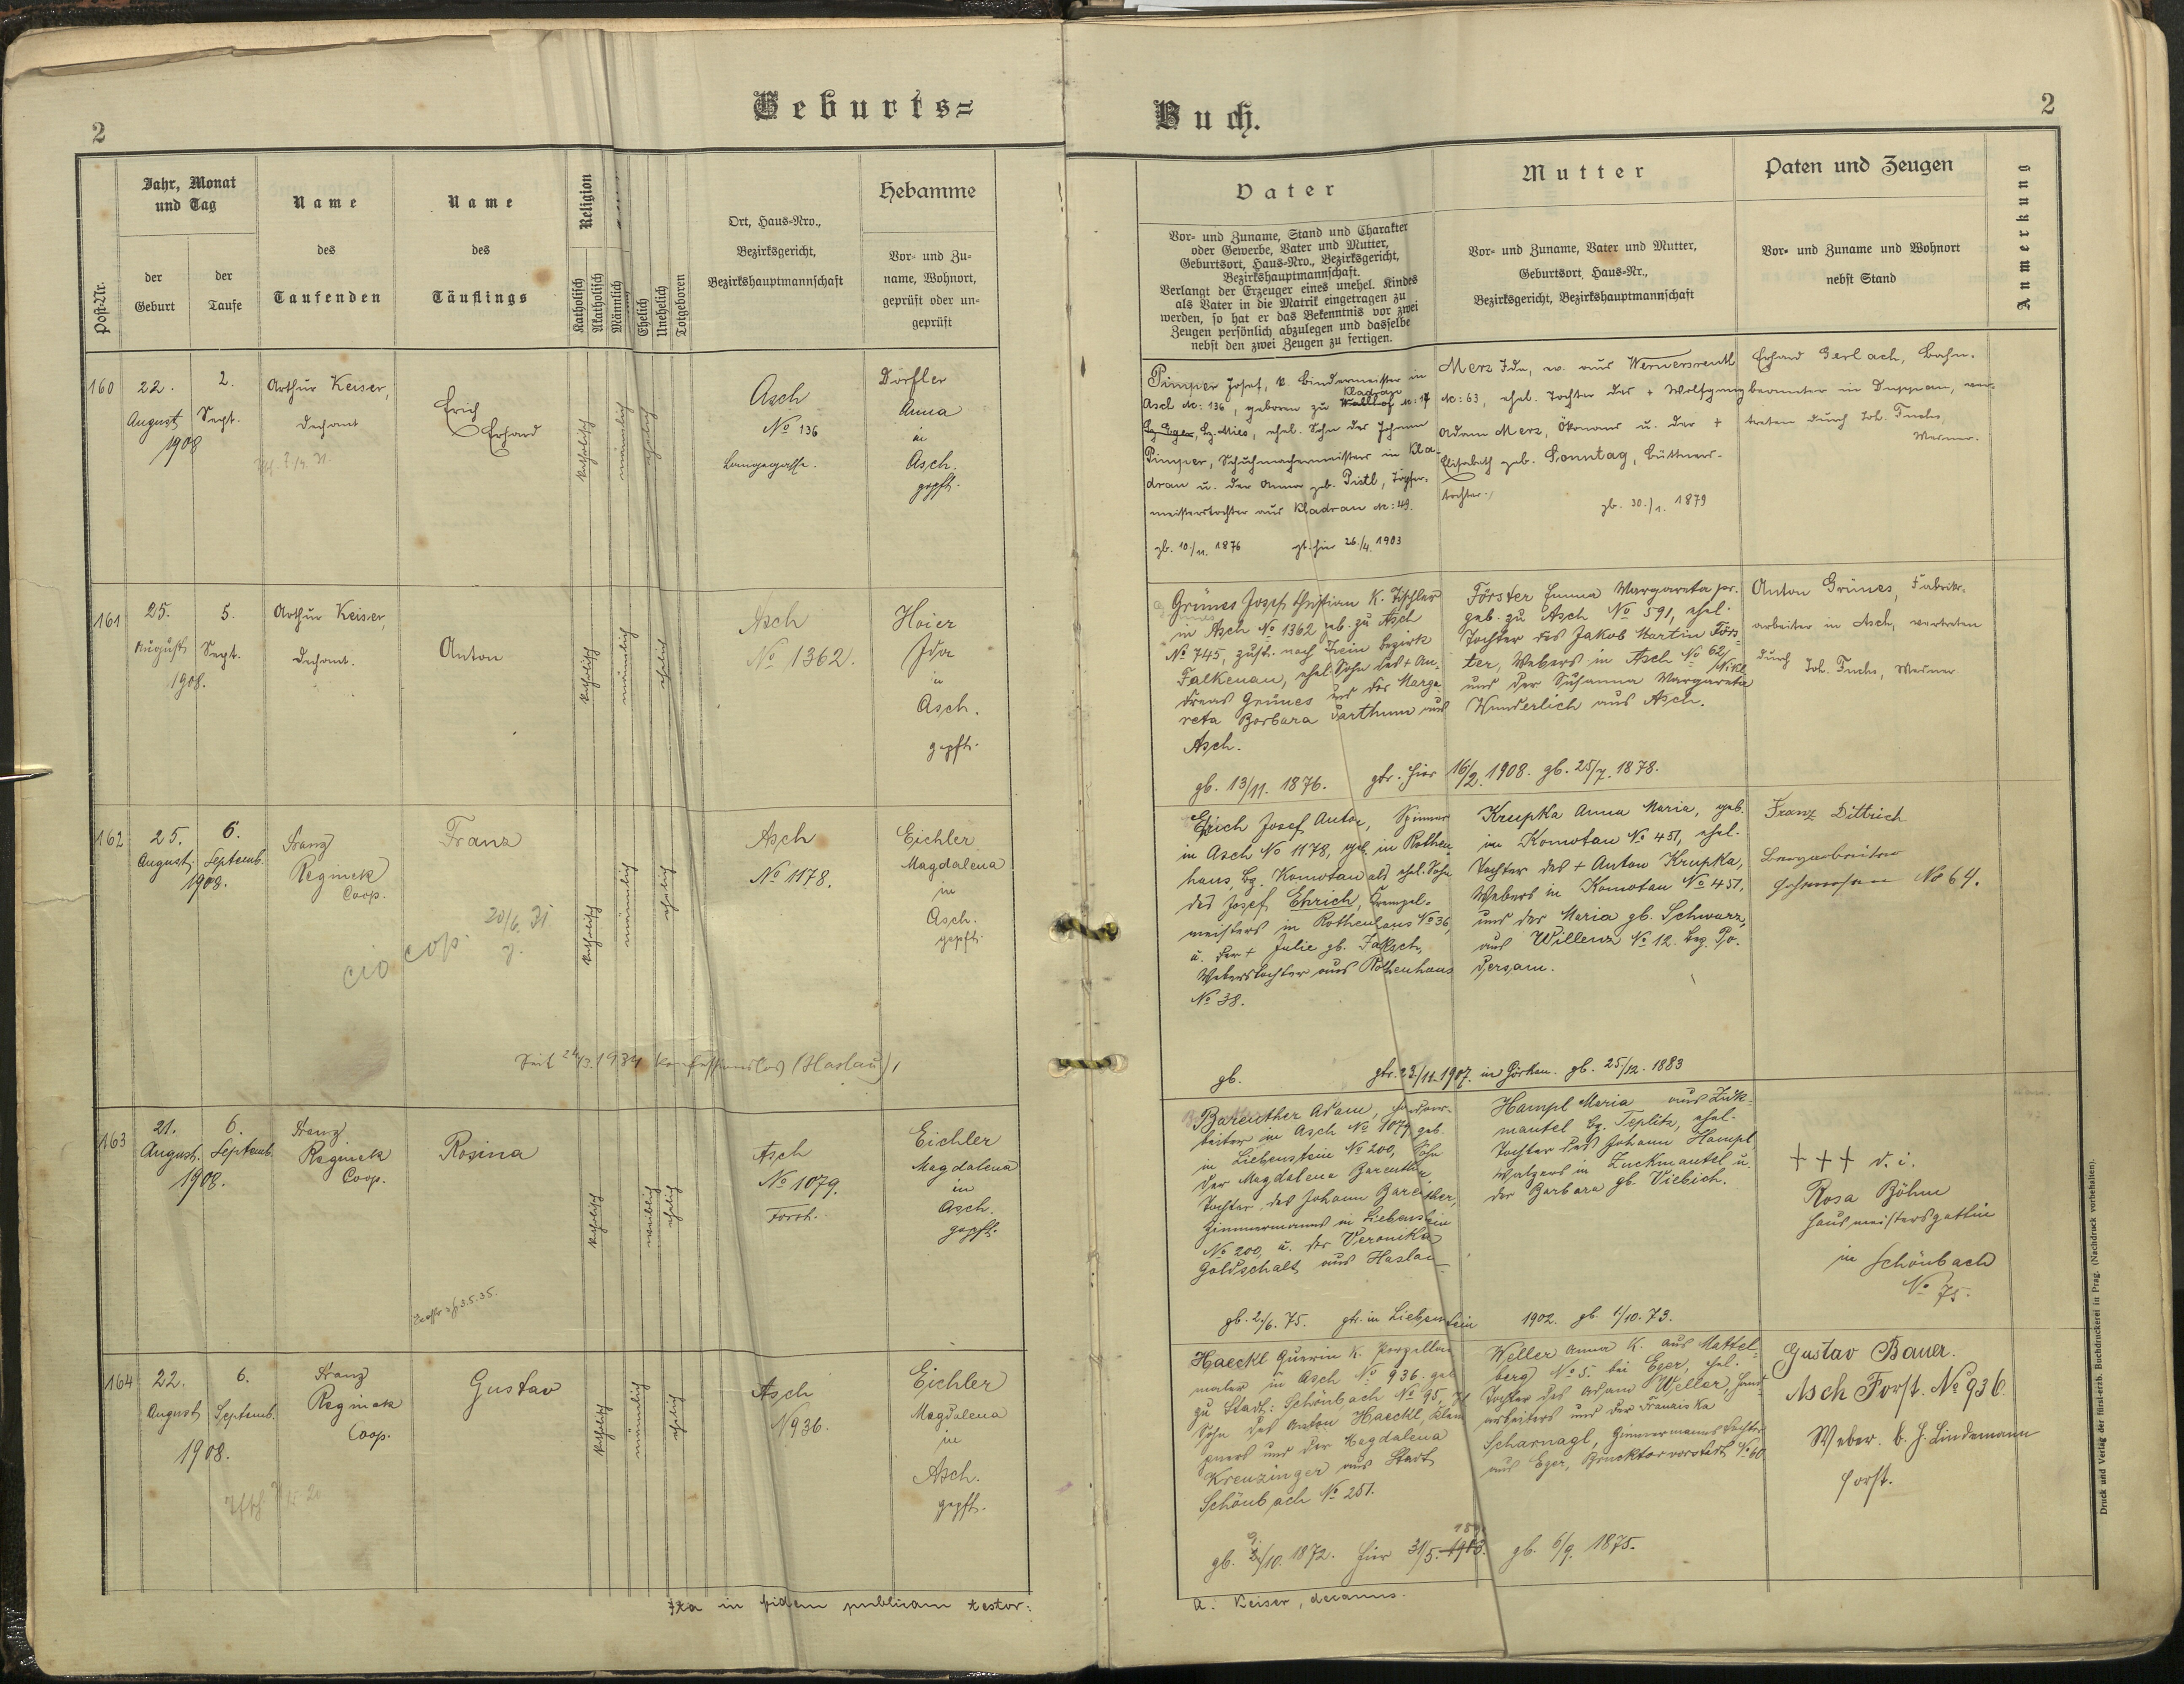 2
Geburts=
Buch.
2
Post-Nr.
Jahr, Monat
und Tag
der
Geburt
der
Taufe
Name
des
Taufenden
Name
des
Täuflings
Religion
Katholisch
Akatholisch
Männlich
Ehelich
Unehelich
Totgeboren
Ort, Haus-Nro.,
Bezirksgericht,
Bezirkshauptmannschaft
Hebamme
Vor- und Zu-
name, Wohnort,
geprüft oder un-
geprüft
Vater
Vor- und Zuname, Stand und Charakter
oder Gewerbe, Vater und Mutter,
Geburtsort, Haus-Nro., Bezirksgericht,
Bezirkshauptmannschaft.
Verlangt der Erzeuger eines unehel. Kindes
als Vater in die Matrik eingetragen zu
werden, so hat er das Bekenntnis vor zwei
Zeugen persönlich abzulegen und dasselbe
nebst den zwei Zeugen zu fertigen.
Mutter
Vor- und Zuname, Vater und Mutter,
Geburtsort, Haus-Nr.,
Bezirksgericht, Bezirkshauptmannschaft
Paten und Zeugen
Vor- und Zuname und Wohnort
nebst Stand
Anmerkung
160
22.
August
1908
2.
Sept.
Arthur Keiser,
Dechant
Erich
Erhard
katholisch
männlich
ehelich
Asch
No 136
Langegasse.
Dörfler
Anna
in
Asch.
gepft.
Pimper Josef, k. Bindermeister in
Asch No: 136, geboren zu Kladrau No: 17
Bz. Mies, ehel. Sohn des Johann
Pimper, Schuhmachermeisters in Kla-
drau u. der Anna geb. Pistl, Töpfer-
meisterstochter aus Kladrau No: 49.
gb. 10./11. 1876 gtr. hier 26./4. 1903
Merz Ida, ev. aus Wernersreuth
No: 63, ehel. Tochter des + Wolfgang
Adam Merz, Ökonoms u. der +
Elisabeth geb. Sonntag, Büttners-
tochter.
gb. 30./1. 1879
Erhard Gerlach, Bahn-
beamter in Duppau, ver-
treten durch Joh. Fuchs,
Mesner.
161
25.
August
1908.
5.
Sept.
Arthur Keiser,
Dechant.
Anton
katholisch
männlich
ehelich
Asch
No 1362.
Hoier
Ida
in
Asch.
gepft.
Grünes Josef Christian k. Tischler
in Asch No 1362 geb. zu Asch
No 745, zust. nach Thein Bezirk
Falkenau, ehel. Sohn des + An-
dreas Grünes und der Marga-
reta Barbara Parthum aus
Asch.
gb. 13/11. 1876. gtr. hier 16/2. 1908. gb. 25/7. 1878.
Förster Emma Margareta pr.
geb. zu Asch No 591, ehel.
Tochter des Jakob Martin Förs-
ter, Webers in Asch No 62/Nikl
und der Susanna Margareta
Wunderlich aus Asch.
Anton Grünes, Fabriks-
arbeiter in Asch, vertreten
durch Joh. Fuchs, Mesner
162
25.
August
1908.
6.
Septemb.
Franz
Reginek
Coop.
Franz
cio cop. 20/6. 31
katholisch
männlich
ehelich
Asch
No 1178.
Eichler
Magdalena
in
Asch.
gepft.
Seit 24/3. 1934 konfessionslos (Haslau)
Ehrich Josef Anton, Spinner
in Asch No 1178, geb. in Rothen-
haus, Bz. Komotau als ehel. Sohn
des Josef Ehrich, Krempel-
meisters in Rothenhaus No 36,
u. der + Julie gb. Jaksch,
Weberstochter aus Rothenhaus
No 38.
gb. gtr. 23/11. 1907. in Görkau. gb. 25/12. 1883
Krupka Anna Maria, geb.
in Komotau No 451, ehel.
Tochter des + Anton Krupka,
Webers in Komotau No 451,
und der Maria gb. Schwarz,
aus Willenz No 12. Bez. Po-
dersam.
Franz Dittrich
No 64.
163
21.
August.
1908.
6.
Septemb.
Franz
Reginek
Coop.
Rosina
3.5.35.
katholisch
weiblich
ehelich
Asch
No 1079.
Forst.
Eichler
Magdalena
in
Asch.
gepft.
Bareuther Adam, Handar-
beiter in Asch No 1079 geb.
in Liebenstein No 200, Sohn
der Magdalena Bareuther,
Tochter des Johann Bareuther,
Zimmermanns in Liebenstein
No 200, u. der Veronika
Goldschalt aus Haslau
gb. 2/6. 75. gtr. in Liebenstein 1902. gb. 1/10. 73.
Hampl Maria aus Zuck-
mantel Bz. Teplitz, ehel.
Tochter des Johann Hampl,
Walzers in Zuckmantel u.
der Barbara gb. Viebich.
+++ d. i.
Rosa Böhm
Hausmeistersgattin
in Schönbach
No 75.
164
22.
August
1908.
6.
Septemb.
Franz
Reginek
Coop.
Gustav
katholisch
männlich
ehelich
Asch
N 936.
Eichler
Magdalena
in
Asch.
gepft.
Haeckl Querin k. Porzellan-
maler in Asch No 936. geb
zu Stadt: Schönbach No 95,
Sohn des Anton Haeckl, Klem-
pners und der Magdalena
Kreuzinger aus Stadt
Schönbach No 251.
gb. 10. 1872. hier 31/5. 1903. gb. 6/9. 1875.
Weller Anna k. aus Mattel-
berg No 5. bei Eger, ehel.
Tochter des Adam Weller, Hand-
arbeiters und der Franziska
Scharnagl, Zimmermannstochter
aus Eger, Brucktorvorstadt No 60
Gustav Bauer.
Asch Forst. No 936.
Weber. b. J. Lindemann
Forst.
Ita in fidem publicam testor:
A. Keiser, decanus.
Druck und Verlag der fürst-erzb. Buchdruckerei in Prag. (Nachdruck vorbehalten).